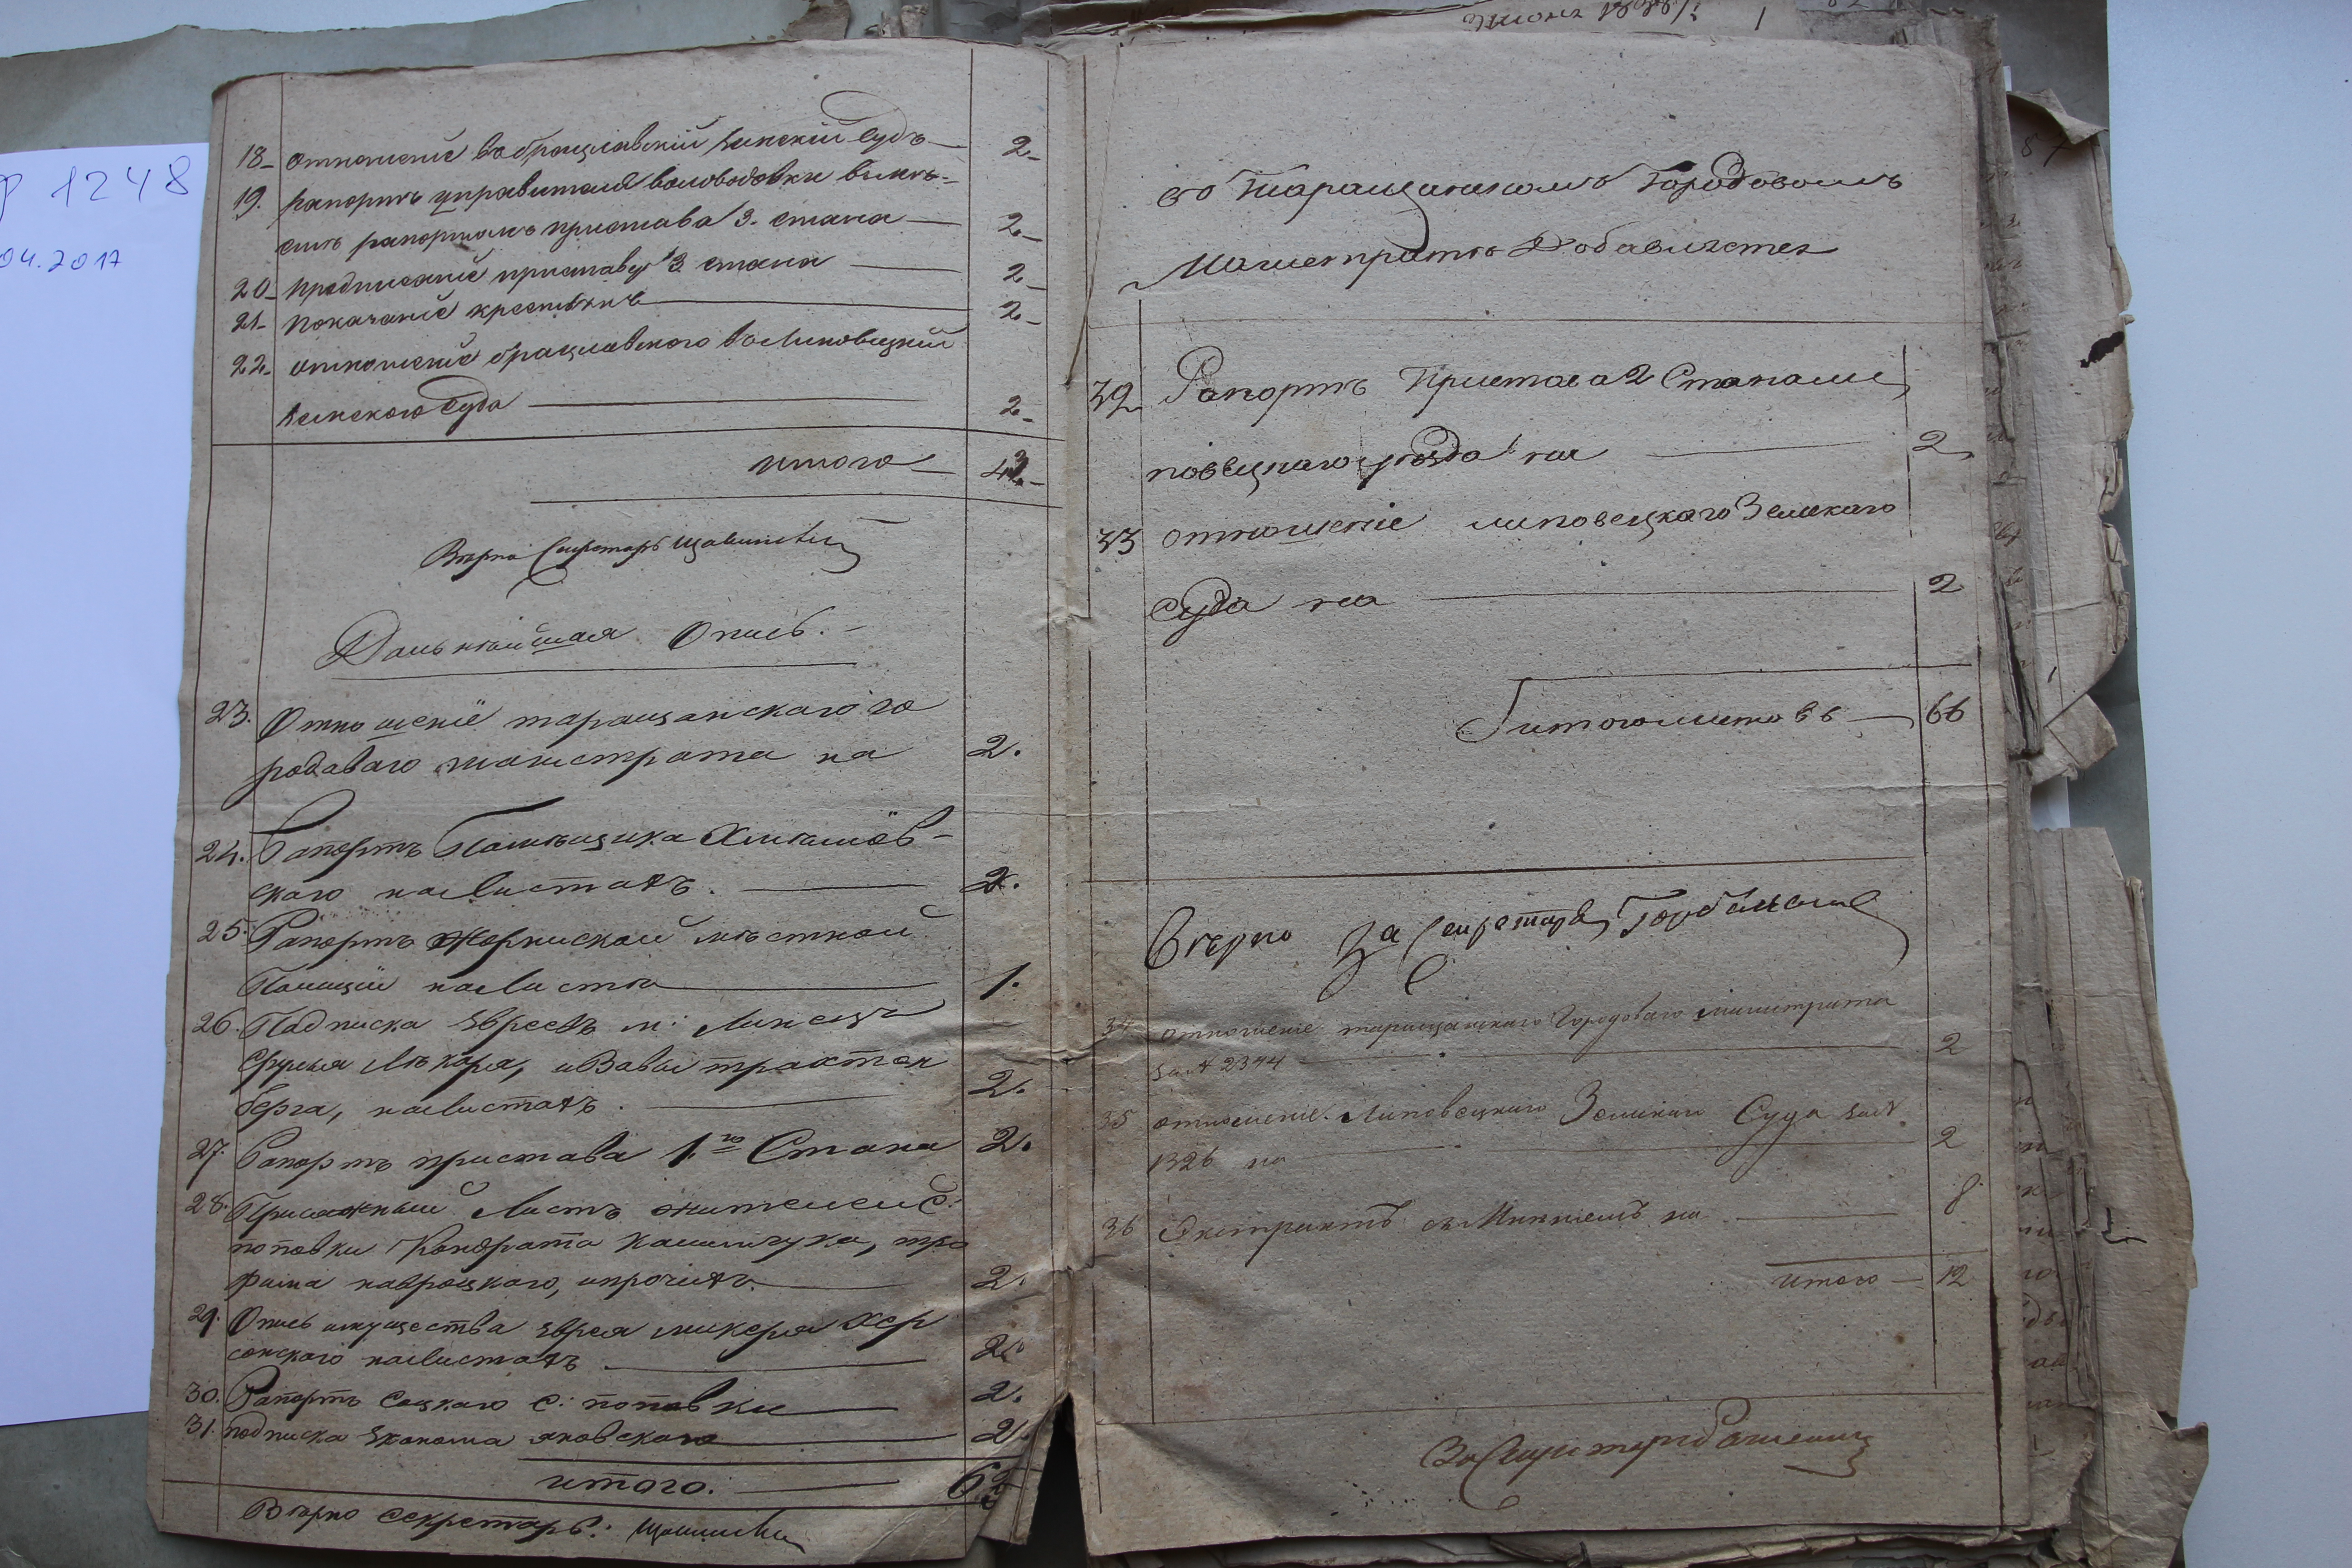 Ф 1248
04.2017
18. отношеніе въ брацлавскій земскій Судъ — 2
19. рапортъ управителя воловодовки вмѣ-
стѣ рапортомъ пристава 3. стана — 2
20. предписаніе приставу 3 стана — 2
21. показаніе крестьянъ — 2
22. отношеніе брацлавского въ Липовецкій
земского Суда — 2
итого —
Вѣрно Секретарь
Дальнѣйшая Опись.
23. Отношеніе таращанскаго го
родаваго магистрата на 2.
24. Рапортъ Помѣщика
скаго на листахъ. — 2.
25. Рапортъ мѣстной
Полиціи на листѣ — 1.
26. Подписка Евреевъ м:
Лѣкаря, и
берга, на листахъ. — 2.
27. Рапортъ пристава 1.го Стана 2.
28. Присяжный Листъ жителей С:
поповки Кондрата, тро
фима навроцкаго, и прочихъ — 2.
29. Опись имущества Еврея Хер
сонскаго на листахъ. — 2.
30. Рапортъ Соцкаго С: поповки — 2.
31. подписка Эконома яновскаго — 2.
итого: —
Вѣрно Секретарь:
въ Таращанскомъ Городовомъ
Магистратѣ Добавляется
32 Рапортъ Пристава 2 Стана Ли
повецкаго уѣзда на — 2
33 отношеніе липовецкаго Земскаго
Суда на — 2
И того листовъ — 66
Вѣрно За Секретаря
34 отношеніе таращанскаго Городоваго магистрата
за № 2344 — 2
35 отношеніе Липовецкаго Земскаго Суда за №
1326 на — 2
36 Экстрактъ съ Мнѣніемъ на — 8
итого — 12
За Секретаря